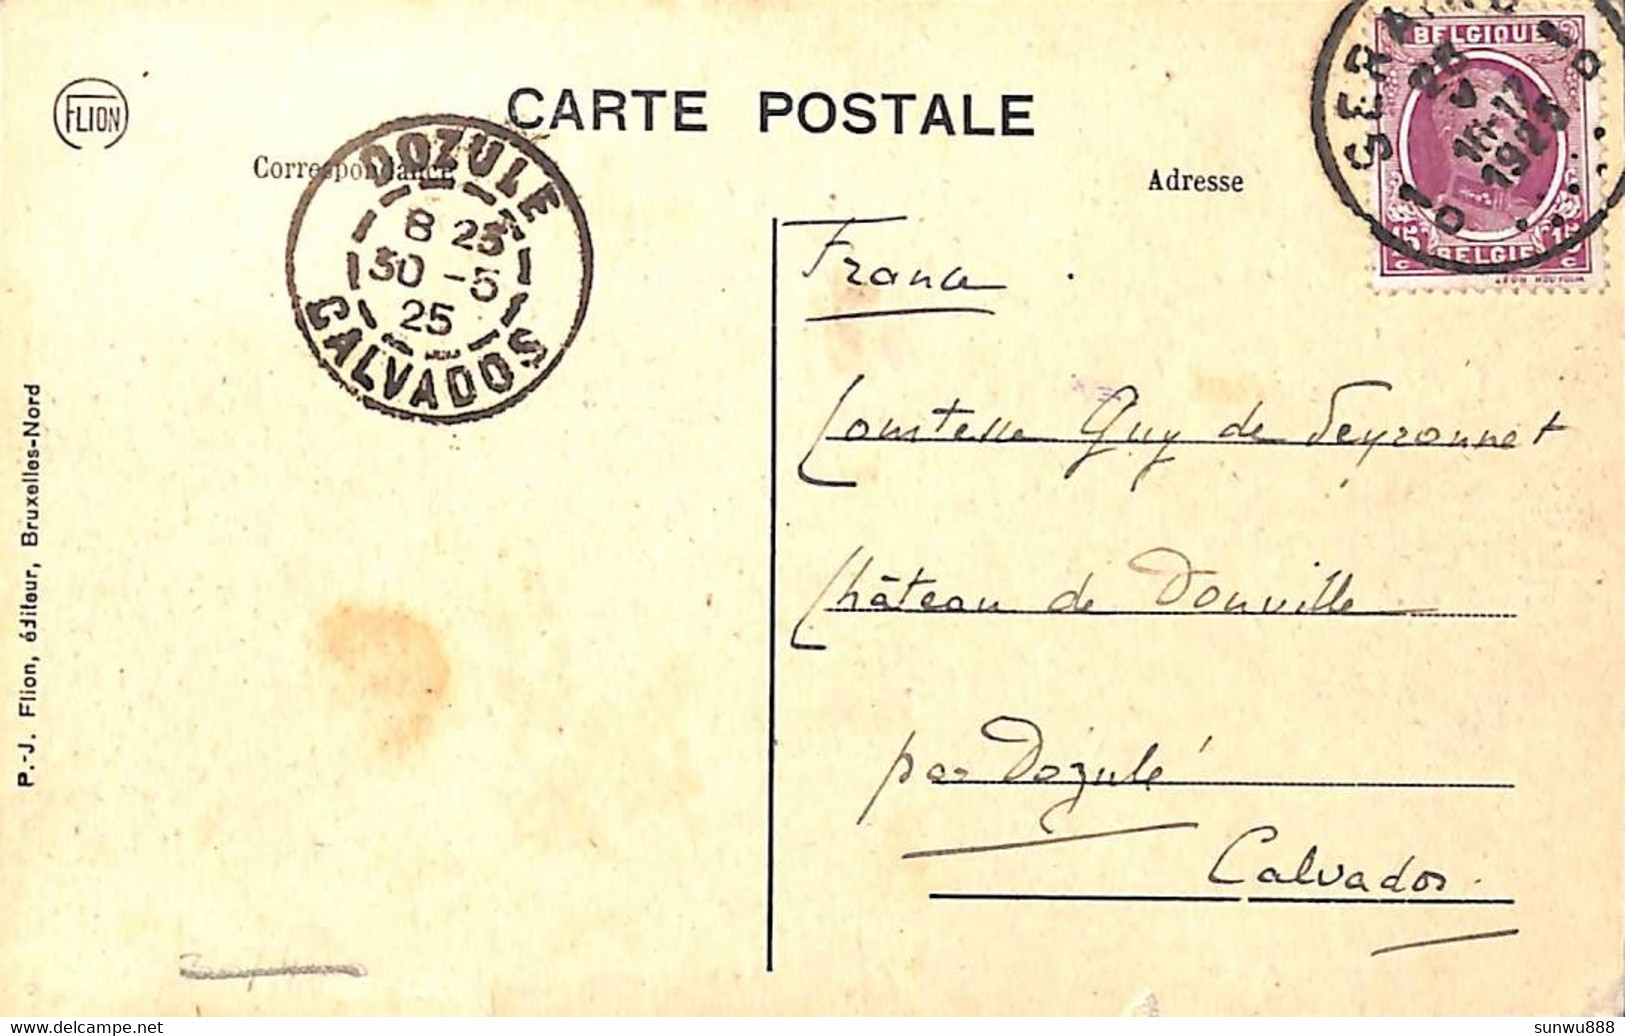 FLION
CARTE POSTALE
Correspondance
Adresse
DOZULE
8 25
30 -5
25
CALVADOS
SERAING
16-17
1925
BELGIQUE
15 c 15 c
BELGIE
France
Comtesse Guy de Peyronnet
Château de Douville
par Dozulé
Calvados.
P.-J. Flion, éditeur, Bruxelles-Nord
delcampe.net
sunwu888